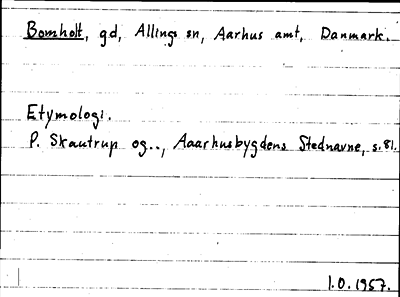 Bomholt, gd, Alling sn, Aarhus amt, Danmark.
Etymologi.
P. Skautrup og.., Aaarhusbygdens Stednavne, s.81.
I.O. 1957.